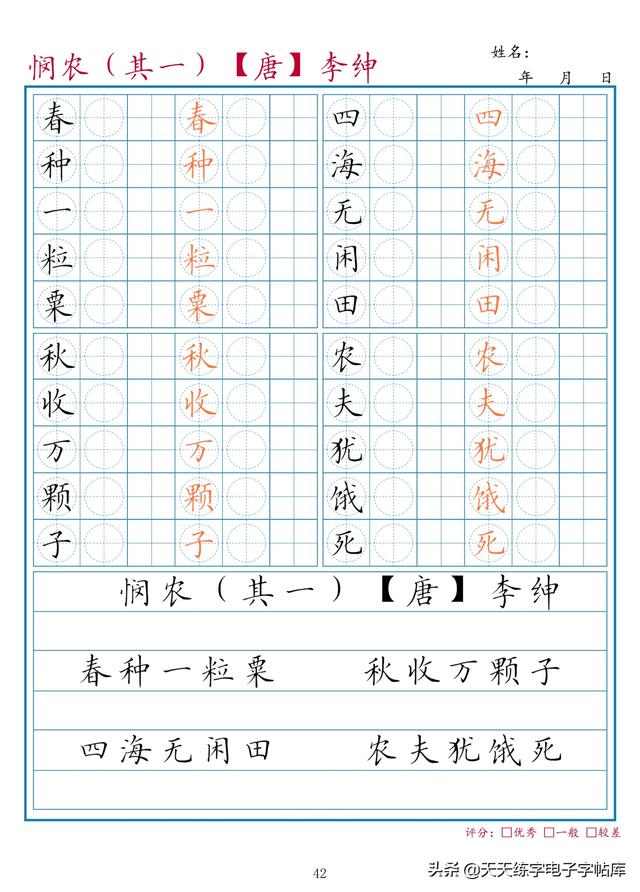 悯农（其一）【唐】李绅
姓名：
年 月 日
春 春 四 四
种 种 海 海
一 一 无 无
粒 粒 闲 闲
粟 粟 田 田
秋 秋 农 农
收 收 夫 夫
万 万 犹 犹
颗 颗 饿 饿
子 子 死 死
悯农（其一）【唐】李绅
春种一粒粟 秋收万颗子
四海无闲田 农夫犹饿死
评分：□优秀 □一般 □较差
42
头条 @天天练字电子字帖库